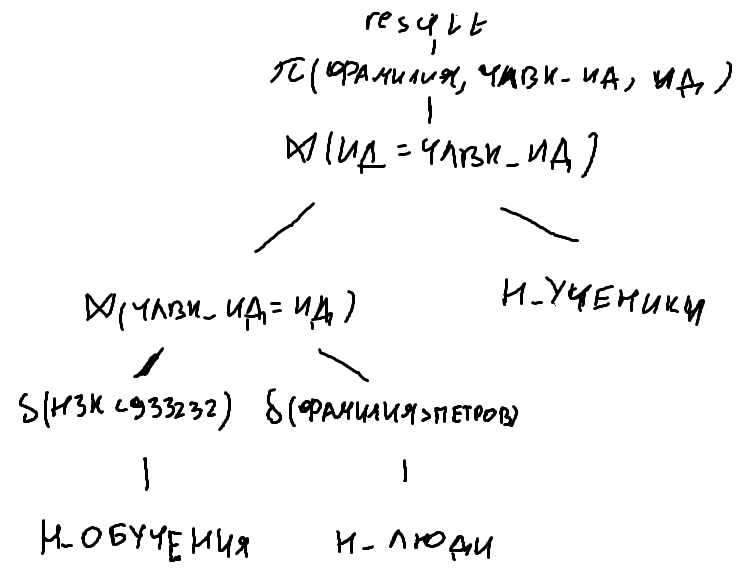 result
π(ФАМИЛИЯ, ЧЛВК-ИД, ИД)
⋈(ИД = ЧЛВК_ИД)
⋈(ЧЛВК_ИД = ИД)
Н_УЧЕНИКИ
δ(НЗК < 933232) δ(ФАМИЛИЯ>ПЕТРОВ)
Н_ОБУЧЕНИЯ Н_ЛЮДИ